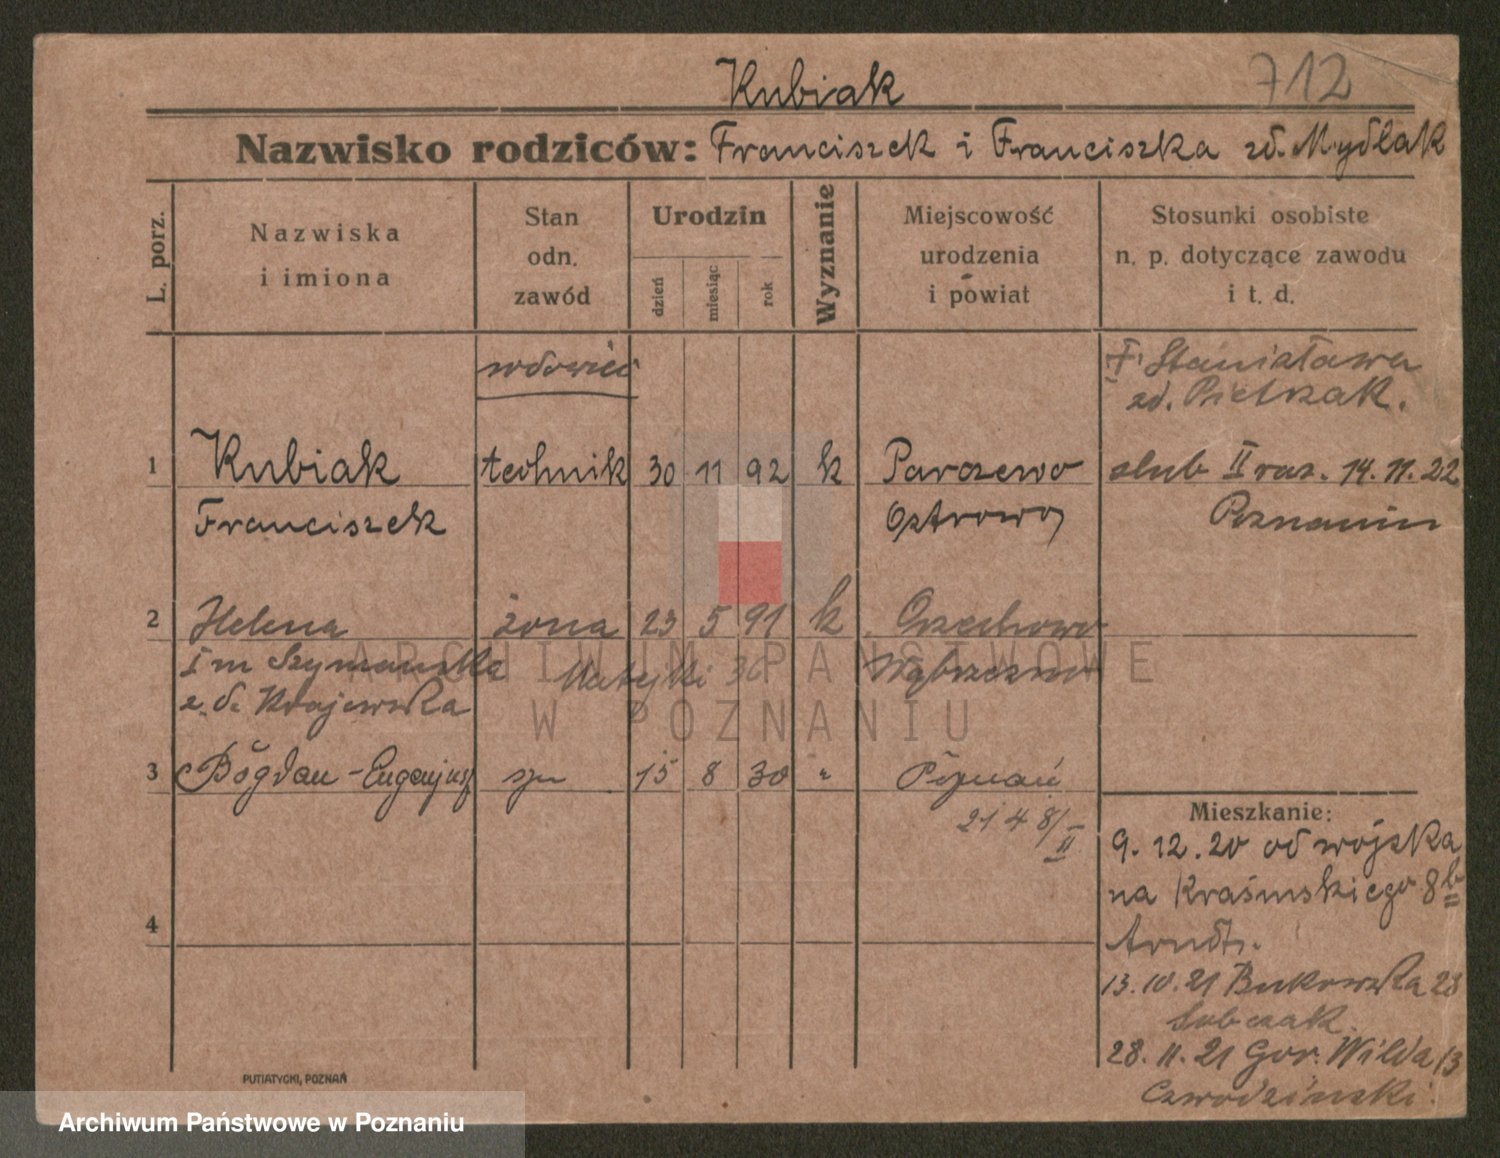 712
Kubiak
Nazwisko rodziców: Franciszek i Franciszka zd. Mydlak
L. porz.
Nazwiska
i imiona
Stan
odn.
zawód
Urodzin
dzień
miesiąc
rok
Wyznanie
Miejscowość
urodzenia
i powiat
Stosunki osobiste
n. p. dotyczące zawodu
i t. d.
wdowiec
I. Stanisława
zd. Pietrzak.
1 Kubiak technik 30 11 92 k Parczewo ślub II raz. 14. 11. 22
Franciszek Ostrowo Poznaniu
2 Helena żona 23 5 91 k Orzechowo
I m Szymańska Matejki 36 Wąbrzeźno
z d. Krajewska
3 Bogdan-Eugenjusz syn 15 8 30 " Poznań
2148/II
Mieszkanie:
9. 12. 20 od wojska
na Kraśińskiego 8b
Arndt.
4
13. 10. 21 Bukowska 28
Sobczak
28. 11. 21 Gor. Wilda 13
Czwodziński.
PUTIATYCKI, POZNAŃ
ARCHIWUM PAŃSTWOWE
W POZNANIU
Archiwum Państwowe w Poznaniu